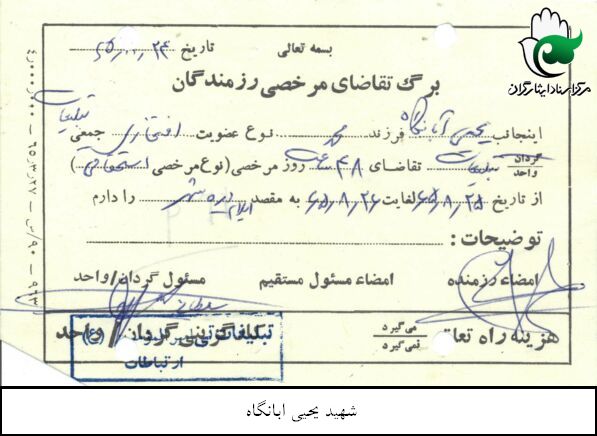 مرکز اسناد ایثارگران
بسمه تعالی
تاریخ ۲۴
برگ تقاضای مرخصی رزمندگان
تبلیغات
اینجانب یحیی آبانگاه فرزند محمد نوع عضویت افتخاری جمعی
گردان
واحد
تبلیغات تقاضای ۴۸ ساعت روز مرخصی (نوع مرخصی استحقاقی)
از تاریخ ۶۵/۸/۲۵ لغایت ۶۵/۸/۲۶ به مقصد ایلام دره شهر را دارم
توضیحات:
امضاء رزمنده امضاء مسئول مستقیم مسئول گردان/واحد
هزینه راه تعلق می‌گیرد
نمی‌گیرد
گردان/واحد
ارتباطات
شهید یحیی ابانگاه